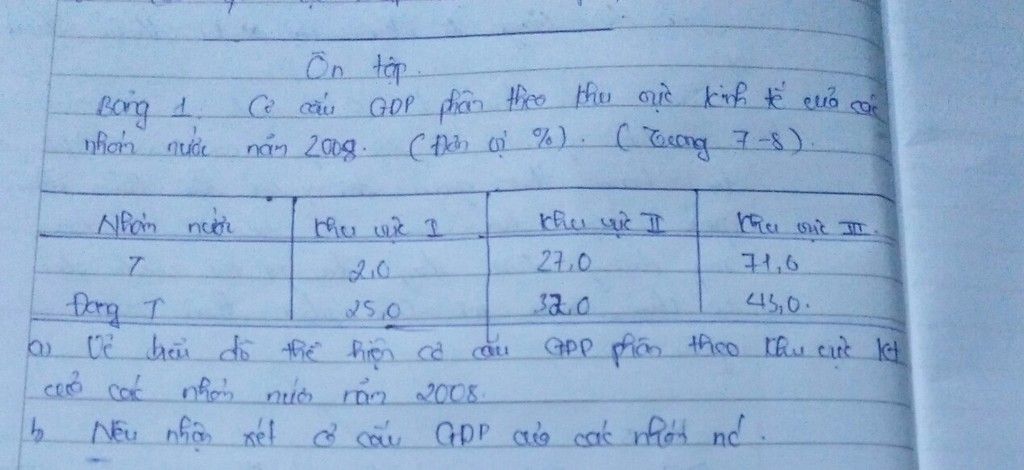 Ôn tập.
Bảng 1. Cơ cấu GDP phân theo khu vực kinh tế của các
nhóm nước năm 2008. (Đơn vị %). (Trang 7-8).
Nhóm nước Khu vực I Khu vực II Khu vực III.
T 2,0 27,0 71,0
Đang T 25,0 32,0 43,0.
a) Vẽ biểu đồ thể hiện cơ cấu GDP phân theo khu vực kt
của các nhóm nước năm 2008.
b Nêu nhận xét cơ cấu GDP của các nhóm nc.